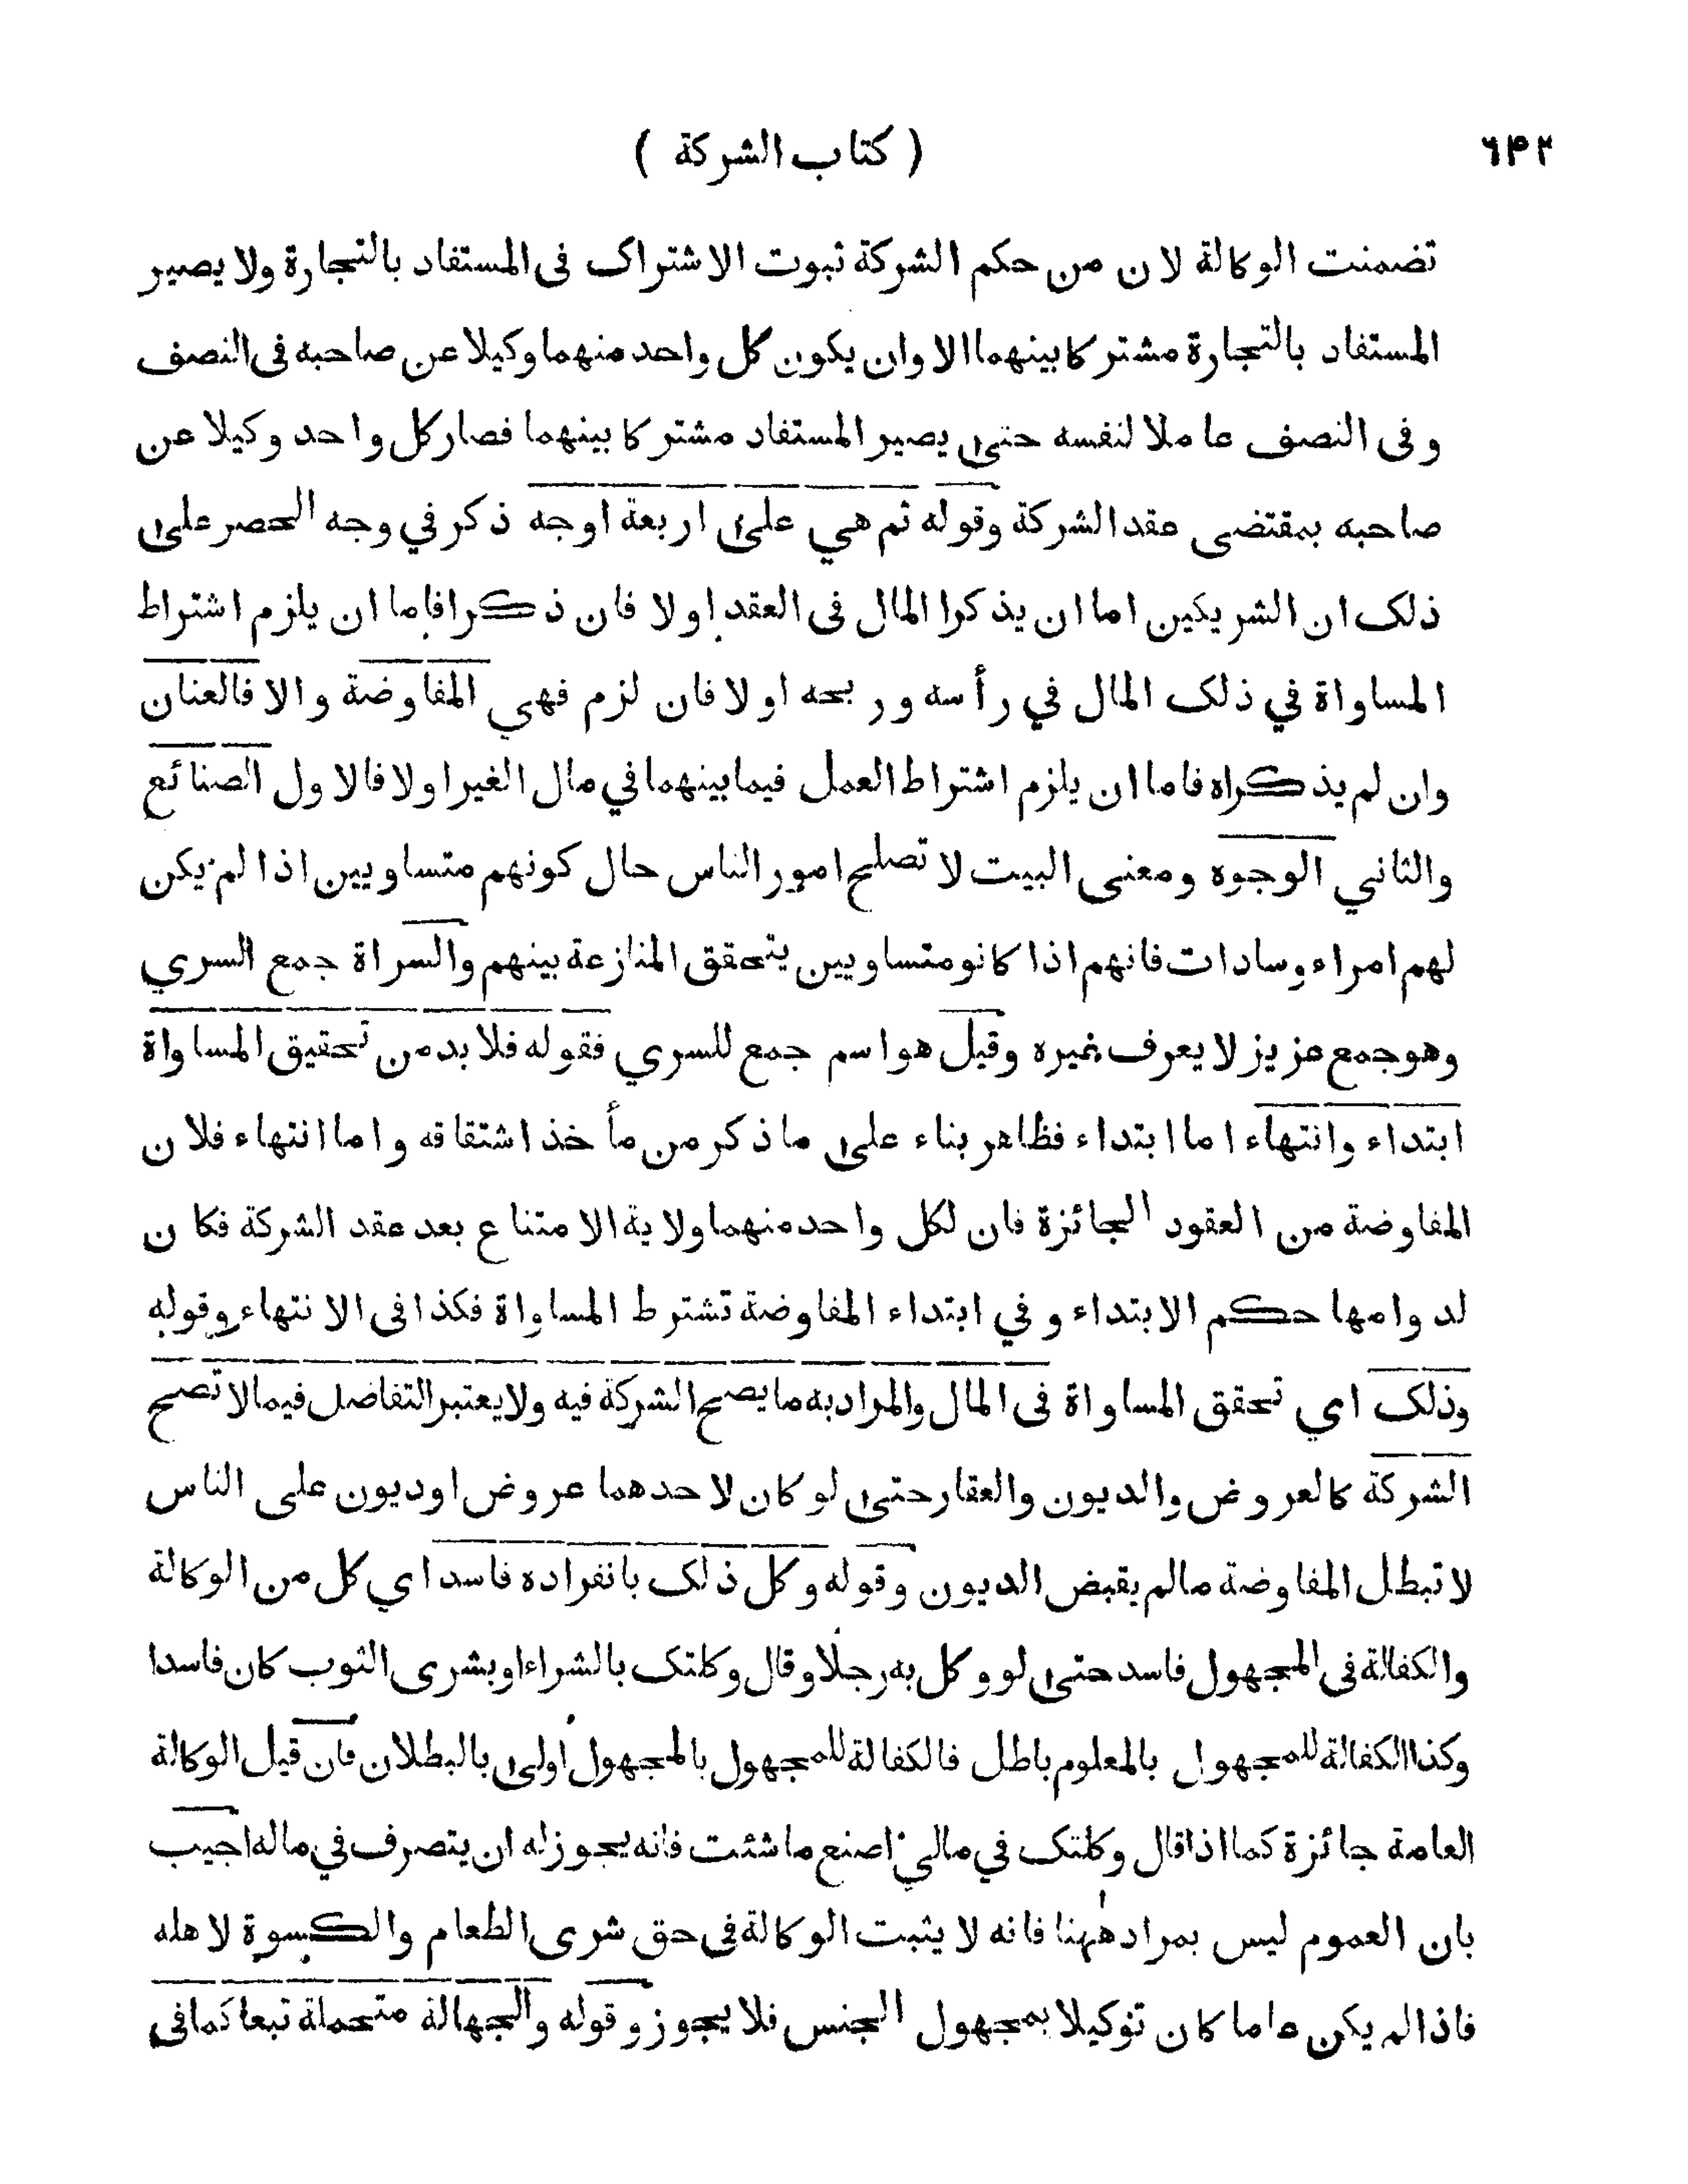 ٦٤٢ ( كتاب الشركة )
تضمنت الوكالة لان من حكم الشركة ثبوت الاشتراك فى المستفاد بالتجارة ولا يصير
المستفاد بالتجارة مشتركا بينهما الا وان يكون كل واحد منهما وكيلا عن صاحبه فى النصف
وفى النصف عاملا لنفسه حتى يصير المستفاد مشتركا بينهما فصار كل واحد وكيلا عن
صاحبه بمقتضى عقد الشركة وقوله ثم هي على اربعة اوجه ذكر في وجه الحصر على
ذلك ان الشريكين اما ان يذكرا المال فى العقد او لا فان ذكرا فاما ان يلزم اشتراط
المساواة في ذلك المال في رأسه وربحه او لا فان لزم فهي المفاوضة والا فالعنان
وان لم يذكراه فاما ان يلزم اشتراط العمل فيما بينهما في مال الغير او لا فالاول الصنائع
والثاني الوجوه ومعنى البيت لا تصلح امور الناس حال كونهم متساويين اذا لم يكن
لهم امراء وسادات فانهم اذا كانو متساويين يتحقق المنازعة بينهم والسراة جمع السري
وهو جمع عزيز لا يعرف غيره وقيل هو اسم جمع للسري فقوله فلا بد من تحقيق المساواة
ابتداء وانتهاء اما ابتداء فظاهر بناء على ما ذكر من مأخذ اشتقاقه واما انتهاء فلان
المفاوضة من العقود الجائزة فان لكل واحد منهما ولاية الامتناع بعد عقد الشركة فكان
لدوامها حكم الابتداء وفي ابتداء المفاوضة تشترط المساواة فكذا فى الانتهاء وقوله
وذلك اي تحقق المساواة فى المال والمراد به ما يصح الشركة فيه ولا يعتبر التفاضل فيما لا تصح
الشركة كالعروض والديون والعقار حتى لو كان لاحدهما عروض او ديون على الناس
لا تبطل المفاوضة ما لم يقبض الديون وقوله وكل ذلك بانفراده فاسد اي كل من الوكالة
والكفالة فى المجهول فاسد حتى لو وكل به رجلا وقال وكلتك بالشراء او بشرى الثوب كان فاسدا
وكذا الكفالة للمجهول بالمعلوم باطل فالكفالة للمجهول بالمجهول اولى بالبطلان فان قيل الوكالة
العامة جائزة كما اذا قال وكلتك في مالي اصنع ما شئت فانه يجوز له ان يتصرف في ماله اجيب
بان العموم ليس بمراد ههنا فانه لا يثبت الوكالة فى حق شرى الطعام والكسوة لاهله
فاذا لم يكن عاما كان توكيلا بمجهول الجنس فلا يجوز وقوله والجهالة متحملة تبعا كما فى